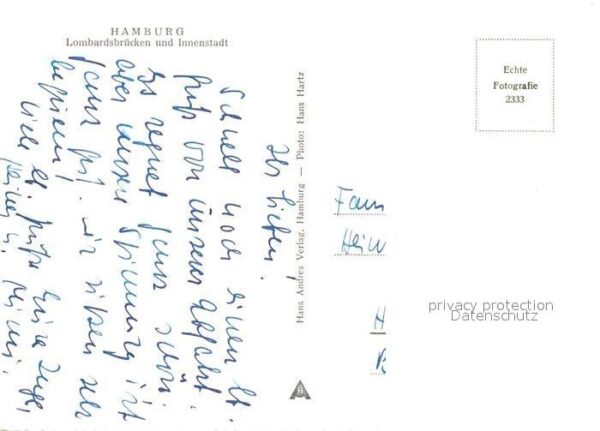 HAMBURG
Lombardsbrücken und Innenstadt
Echte
Fotografie
2333
Hans Andres Verlag, Hamburg — Photo: Hans Hartz
Ihr Lieben!
Schnell noch einen lb.
Gruß von unserer Abfahrt.
Es regnet ganz schön
aber unsere Stimmung ist
ganz gut. Wir sitzen sehr
bequem!
Viele lb. Grüße
Fam
Hein
H
privacy protection
Datenschutz